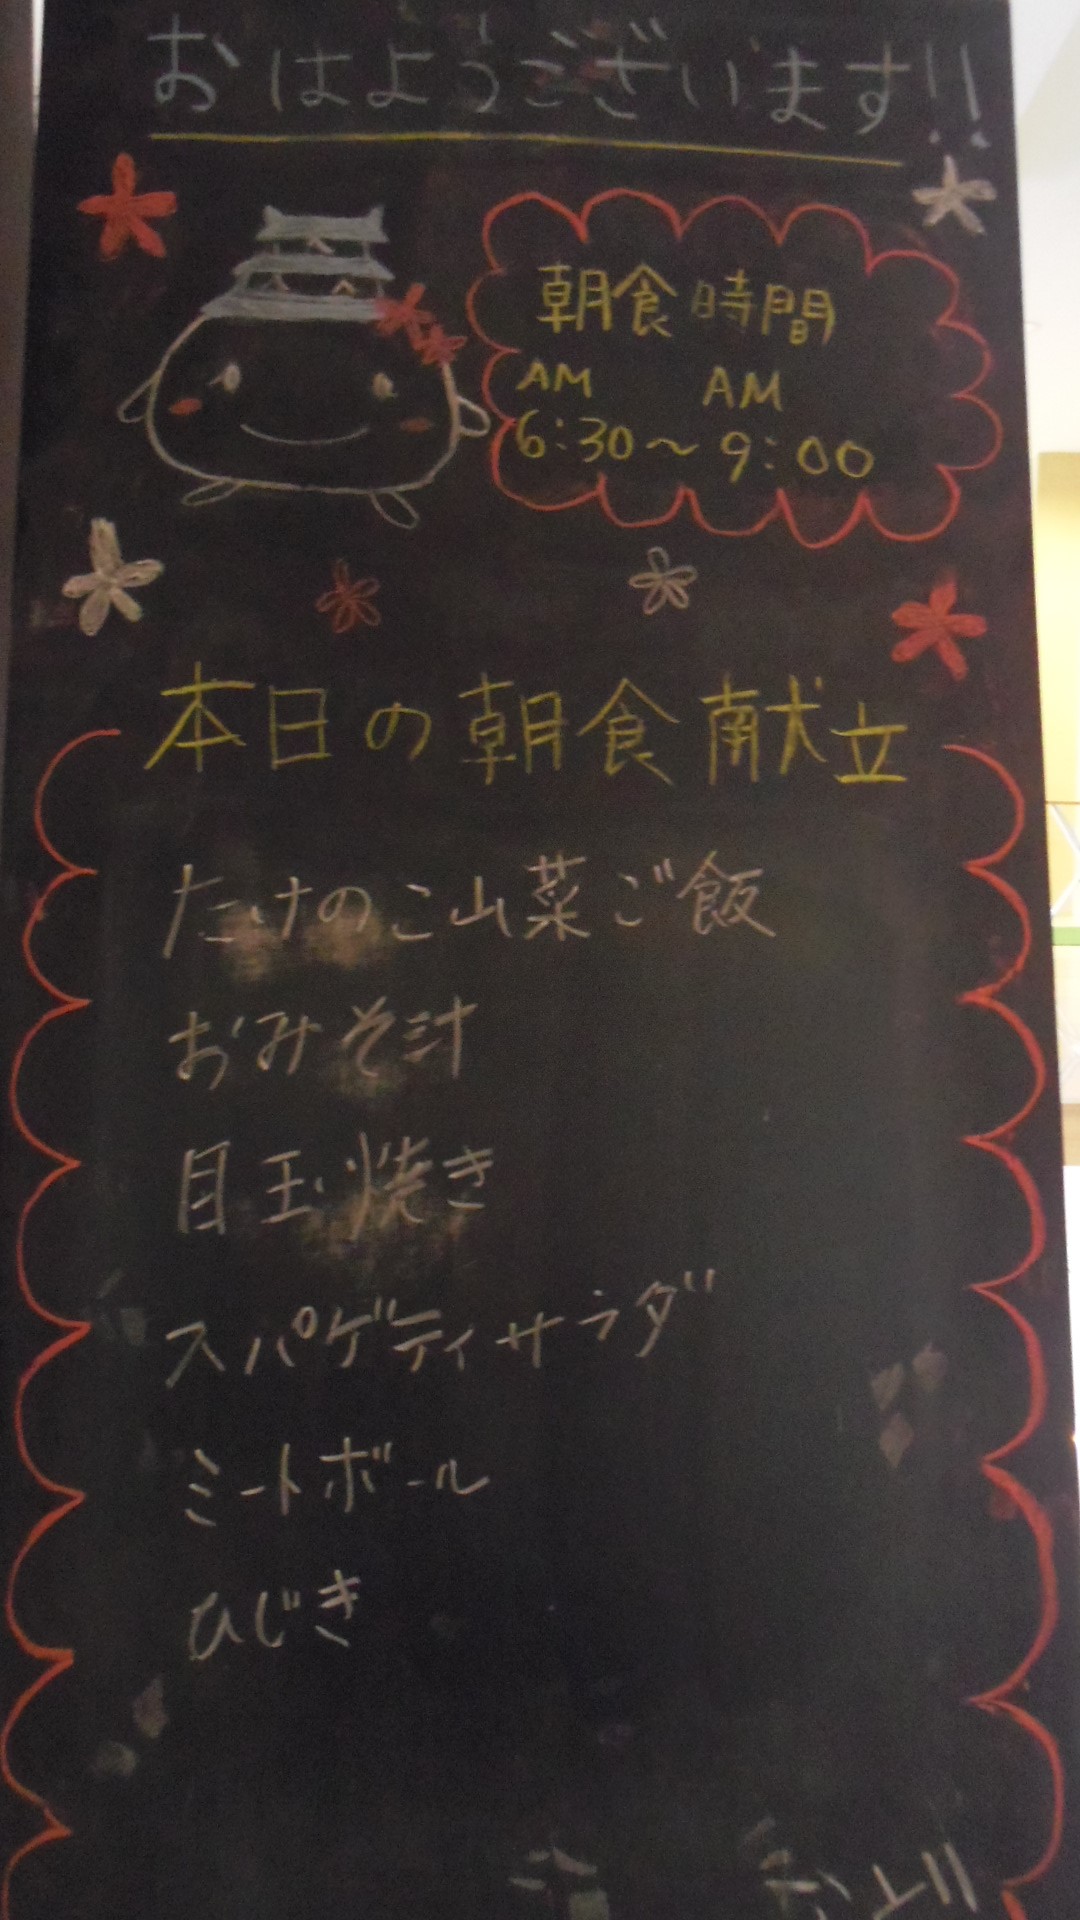 おはようございます!!
朝食時間
AM AM
6:30～9:00
本日の朝食献立
たけのこ山菜ご飯
おみそ汁
目玉焼き
スパゲティサラダ
ミートボール
ひじき